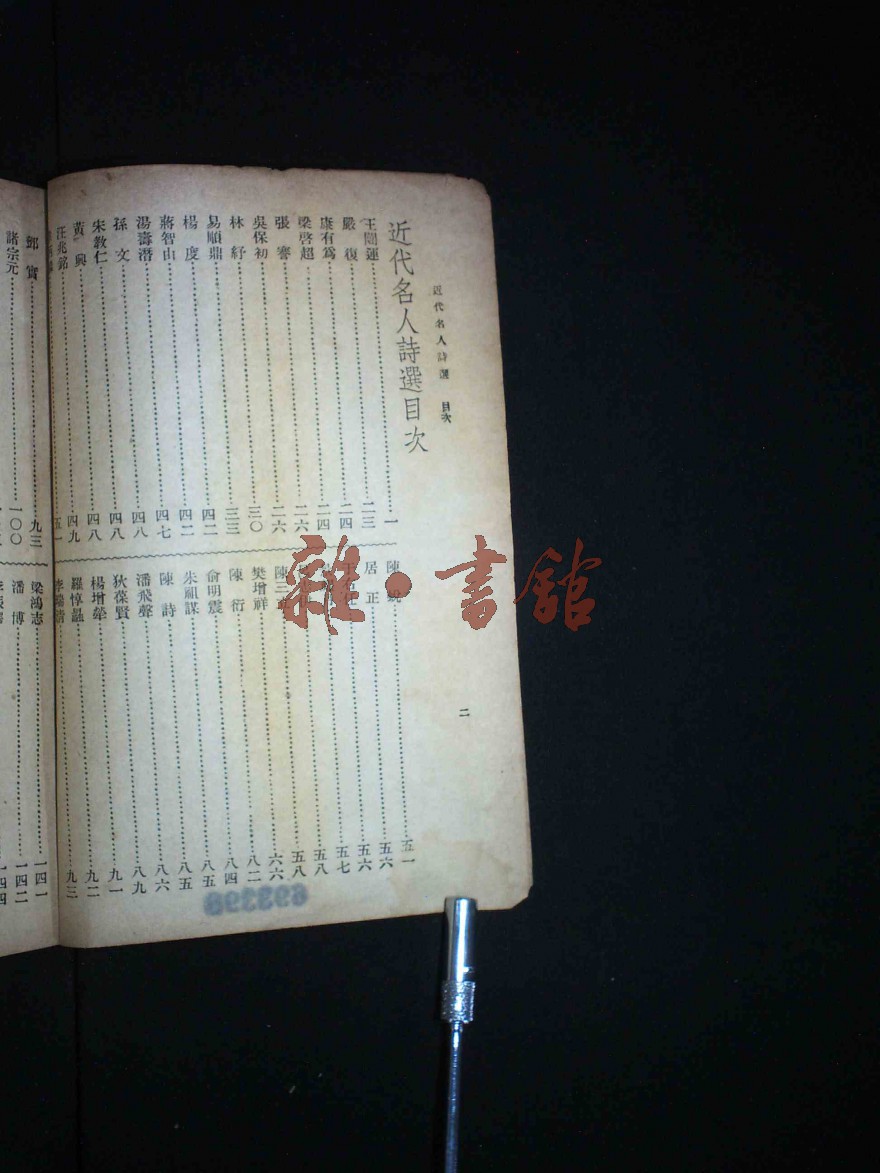 近代名人詩選 目次
二
近代名人詩選目次
王闓運 一
嚴復 二三
康有爲 二四
梁啓超 二六
張謇 二六
吳保初 三〇
林紓 三三
易順鼎 四二
楊度 四二
蔣智由 四七
湯壽潛 四八
孫文 四八
朱教仁 四八
黃興 四九
汪兆銘 五一
陳銳 五六
居正 五六
五七
五八
五八
陳三 六六
樊增祥 八二
陳衍 八四
俞明震 八五
朱祖謀 八五
陳詩 八六
潘飛聲 八九
狄葆賢 九一
楊增犖 九二
羅惇曧 九三
鄧實 九三
諸宗元 一〇〇
梁鴻志 一四一
潘博 一四二
一四四
雜·書館